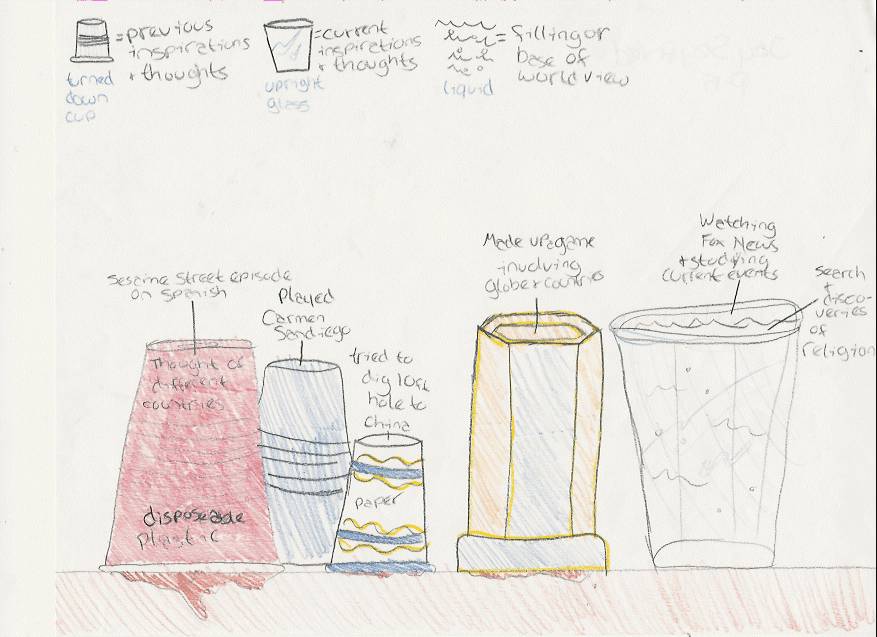 = previous
inspirations
+ thoughts
turned
down
cup
= current
inspirations
+ thoughts
upright
glass
= filling or
base of
world view
liquid
Sesame Street episode
on Spanish
Played
Carmen
Sandiego
tried to
dig
hole to
China
Made up a game
involving
globe + countries
Watching
Fox News
+ studying
current events
search
+
disco-
veries
of
religion
Thought of
different
countries
disposeable
plastic
paper